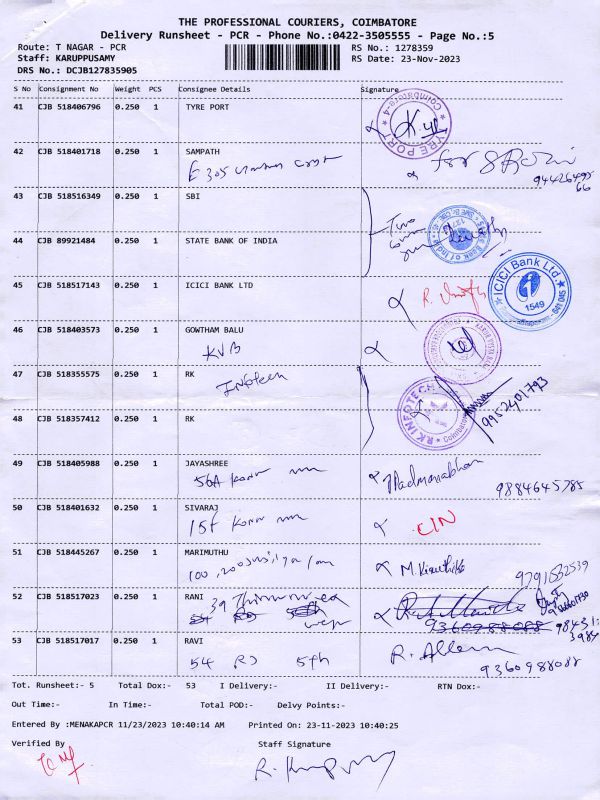 THE PROFESSIONAL COURIERS, COIMBATORE
Delivery Runsheet - PCR - Phone No.:0422-3505555 - Page No.:5
Route: T NAGAR - PCR RS No.: 1278359
Staff: KARUPPUSAMY RS Date: 23-Nov-2023
DRS No.: DCJB127835905
S No Consignment No Weight PCS Consignee Details Signature
41 CJB 518406796 0.250 1 TYRE PORT
TYRE PORT Coimbatore-4
42 CJB 518401718 0.250 1 SAMPATH
E 305 for
43 CJB 518516349 0.250 1 SBI
Two
44 CJB 89921484 0.250 1 STATE BANK OF INDIA
45 CJB 518517143 0.250 1 ICICI BANK LTD
ICICI Bank Ltd. 1549 641 045
46 CJB 518403573 0.250 1 GOWTHAM BALU
KVB
47 CJB 518355575 0.250 1 RK
Infotech
RK INFOTECH Coimbatore
9952401793
48 CJB 518357412 0.250 1 RK
49 CJB 518405988 0.250 1 JAYASHREE
56A Padmanabhan
9884645785
50 CJB 518401632 0.250 1 SIVARAJ
15F
51 CJB 518445267 0.250 1 MARIMUTHU
100, M. Kiruthika
52 CJB 518517023 0.250 1 RANI
39
9360988088
53 CJB 518517017 0.250 1 RAVI
54 RJ 5th R. Allen
9360988088
Tot. Runsheet:- 5 Total Dox:- 53 I Delivery:- II Delivery:- RTN Dox:-
Out Time:- In Time:- Total POD:- Delvy Points:-
Entered By :MENAKAPCR 11/23/2023 10:40:14 AM Printed On: 23-11-2023 10:40:25
Verified By Staff Signature